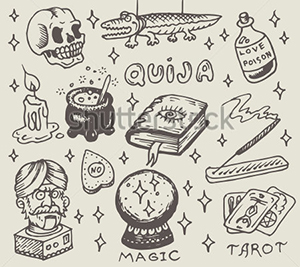 LOVE
POISON
QUIJA
shutterstock
NO
MAGIC
TAROT